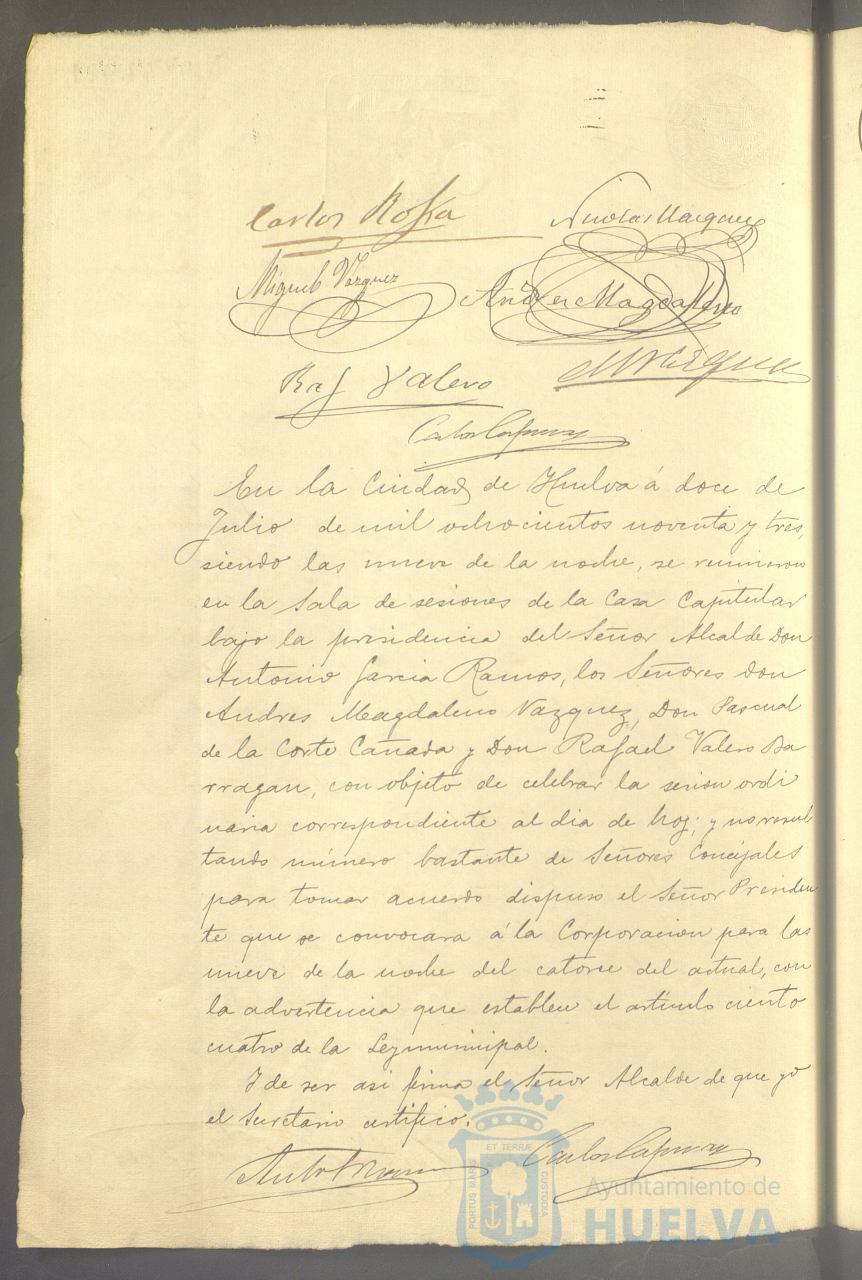 Carlos Rossa
Nicolas Vazquez
Miguel Vazquez
Andres Magdaleno
Raf Valero
M Vazquez
Carlos
En la Ciudad de Huelva á doce de
Julio de mil ochocientos noventa y tres,
siendo las nueve de la noche, se reunieron
en la Sala de sesiones de la Casa Capitular
bajo la presidencia del Señor Alcalde Don
Antonio Garcia Ramos, los Señores Don
Andres Magdaleno Vazquez, Don Pascual
de la Corte Cañada y Don Rafael Valero Ba
rragan, con objeto de celebrar la sesion ordi
naria correspondiente al dia de hoy; y no resul
tando número bastante de Señores Concejales
para tomar acuerdo dispuso el Señor Presiden
te que se convocara á la Corporacion para las
nueve de la noche del catorce del actual, con
la advertencia que establece el artículo ciento
cuatro de la Ley municipal.
Y de ser asi firma el Señor Alcalde de que yo
el Secretario certifico.
Carlos
PORTUS MARIS ET TERRÆ CUSTODIA
Ayuntamiento de
HUELVA